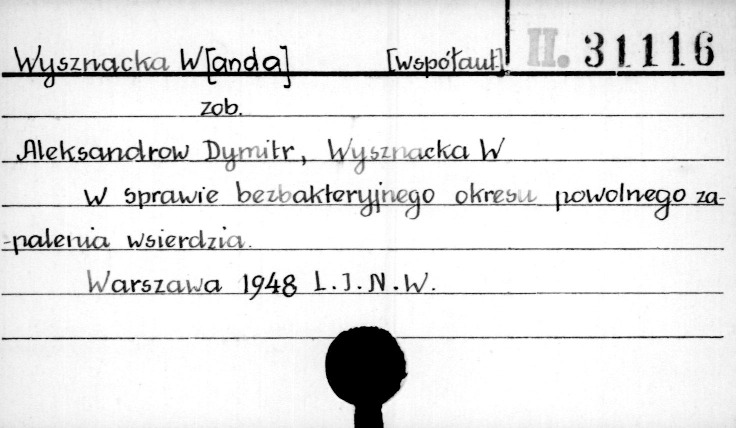 Wysznacka W[anda] [współaut] II. 31116
zob.
Aleksandrow Dymitr, Wysznacka W
W sprawie bezbakteryjnego okresu powolnego za-
-palenia wsierdzia.
Warszawa 1948 L.I.N.W.